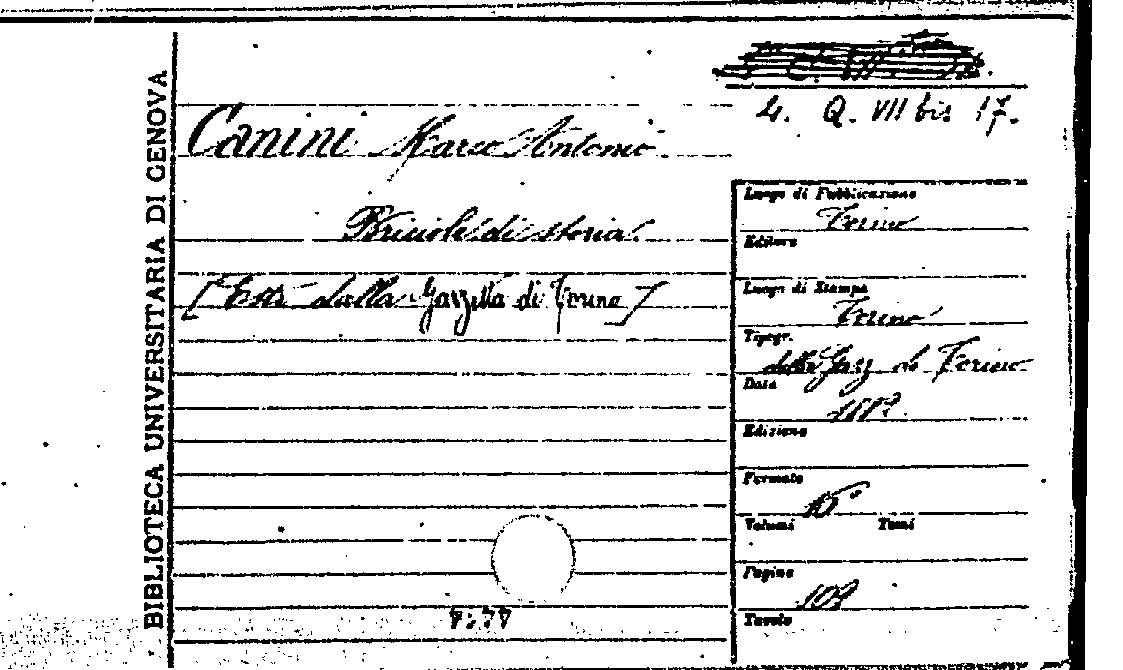 BIBLIOTECA UNIVERSITARIA DI GENOVA
4. Q. VII bis 17.
Canini Marco Antonio
Briciole di storia.
[Estr. dalla Gazzetta di Torino]
Luogo di Pubblicazione
Torino
Editore
Luogo di Stampa
Torino
Tipogr.
della Gazz. di Torino
Data
Edizione
Formato
Volumi Tomi
Pagine
109
Tavole